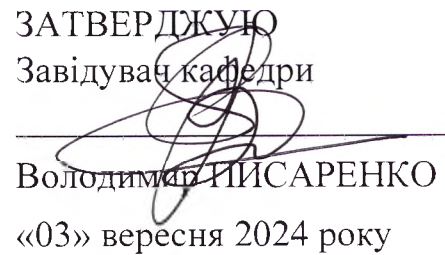 ЗАТВЕРДЖУЮ
Завідувач кафедри
Володимир ПИСАРЕНКО
«03» вересня 2024 року